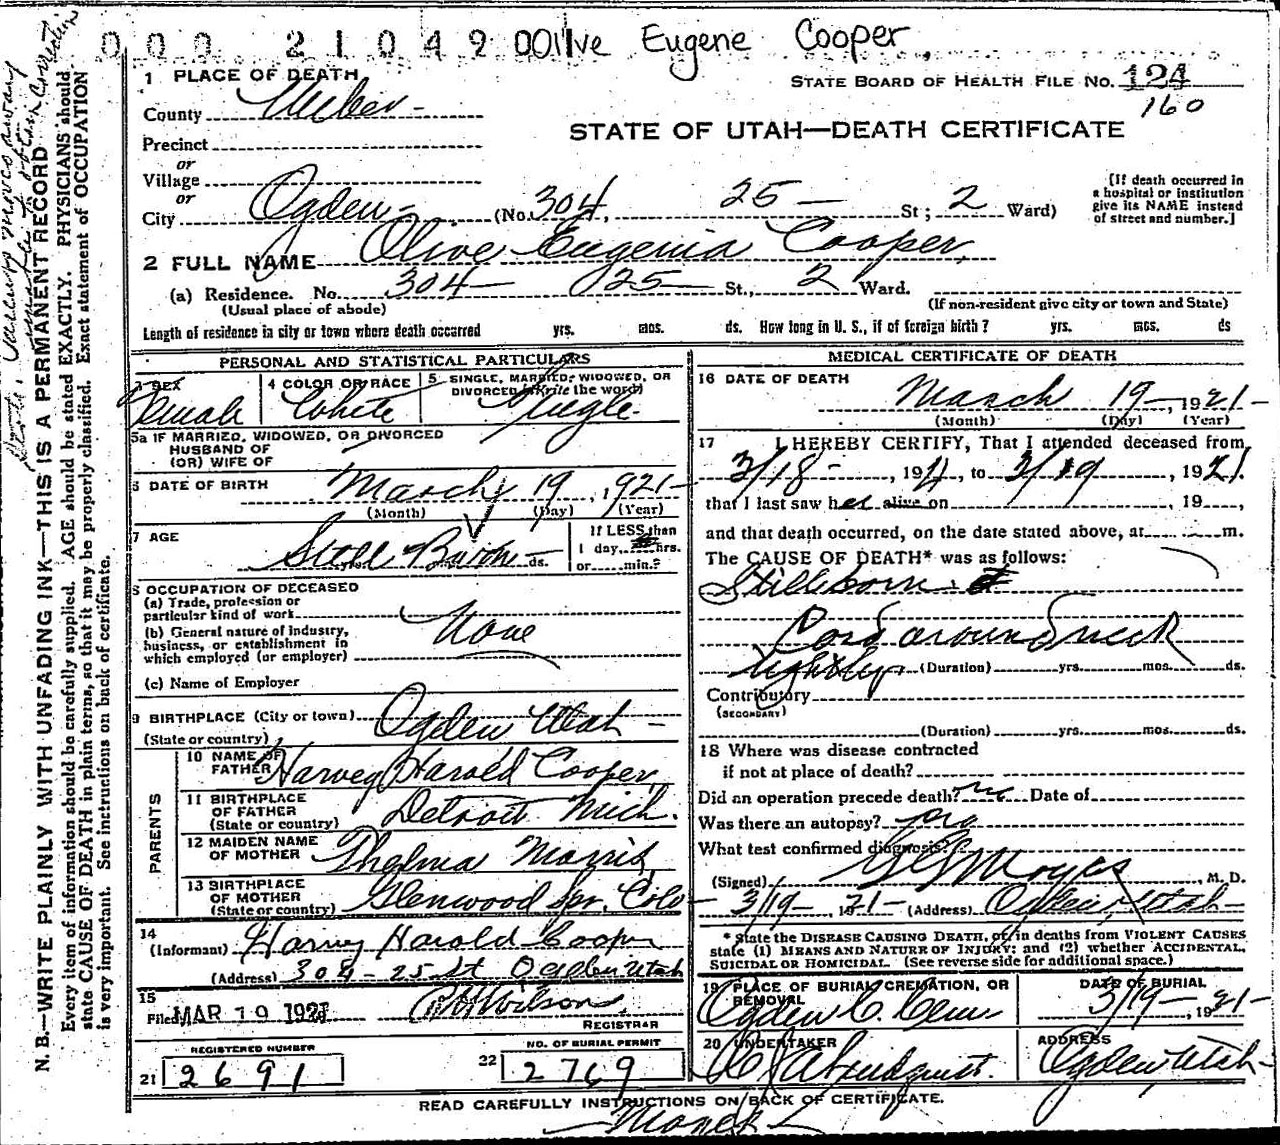 000 210490 Olive Eugene Cooper,
1 PLACE OF DEATH
STATE BOARD OF HEALTH FILE NO. 124
160
County Weber
STATE OF UTAH—DEATH CERTIFICATE
Precinct
or
Village
or
City Ogden (No. 304, 25 — St; 2 Ward)
[If death occurred in a hospital or institution give its NAME instead of street and number.]
2 FULL NAME Olive Eugenia Cooper,
(a) Residence. No. 304 — 25 — St., 2 Ward.
(Usual place of abode) (If non-resident give city or town and State)
Length of residence in city or town where death occurred yrs. mos. ds. How long in U. S., if of foreign birth? yrs. mos. ds
PERSONAL AND STATISTICAL PARTICULARS
3 SEX Female
4 COLOR OR RACE White
5 SINGLE, MARRIED, WIDOWED, OR DIVORCED (Write the word) Single
5a IF MARRIED, WIDOWED, OR DIVORCED
HUSBAND OF
(OR) WIFE OF
6 DATE OF BIRTH March 19, 1921
(Month) (Day) (Year)
7 AGE Still Born ds.
If LESS than
1 day hrs.
or min.?
8 OCCUPATION OF DECEASED
(a) Trade, profession or
particular kind of work
(b) General nature of industry,
business, or establishment in
which employed (or employer) None
(c) Name of Employer
9 BIRTHPLACE (City or town) Ogden Utah
(State or country)
PARENTS
10 NAME OF FATHER Harvey Harold Cooper
11 BIRTHPLACE OF FATHER (State or country) Detroit Mich.
12 MAIDEN NAME OF MOTHER Thelma Morris
13 BIRTHPLACE OF MOTHER (State or country) Glenwood Spr. Colo
14
(Informant) Harvey Harold Cooper
(Address) 304 - 25 St Ogden Utah
15
Filed MAR 19 1921 Wilson
REGISTRAR
REGISTERED NUMBER
21 2691
NO. OF BURIAL PERMIT
22 2769
MEDICAL CERTIFICATE OF DEATH
16 DATE OF DEATH
March 19, 1921
(Month) (Day) (Year)
17 I HEREBY CERTIFY, That I attended deceased from
3/18, 1921, to 3/19, 1921.
that I last saw her alive on , 19 ,
and that death occurred, on the date stated above, at m.
The CAUSE OF DEATH* was as follows:
Stillborn.
Cord around neck
tightly (Duration) yrs. mos. ds.
Contributory
(SECONDARY)
(Duration) yrs. mos. ds.
18 Where was disease contracted
if not at place of death?
Did an operation precede death? no Date of
Was there an autopsy?
What test confirmed diagnosis?
(Signed) Moyes, M. D.
3/19, 1921 (Address) Ogden, Utah
* State the DISEASE CAUSING DEATH, or in deaths from VIOLENT CAUSES
state (1) MEANS AND NATURE OF INJURY; and (2) whether ACCIDENTAL,
SUICIDAL OR HOMICIDAL. (See reverse side for additional space.)
19 PLACE OF BURIAL, CREMATION, OR REMOVAL Ogden C. Cem
DATE OF BURIAL 3/19, 1921
20 UNDERTAKER Lindquist.
ADDRESS Ogden, Utah
READ CAREFULLY INSTRUCTIONS ON BACK OF CERTIFICATE.
N. B.—WRITE PLAINLY WITH UNFADING INK—THIS IS A PERMANENT RECORD
Every item of information should be carefully supplied. AGE should be stated EXACTLY. PHYSICIANS should
state CAUSE OF DEATH in plain terms, so that it may be properly classified. Exact statement of OCCUPATION
is very important. See instructions on back of certificate.